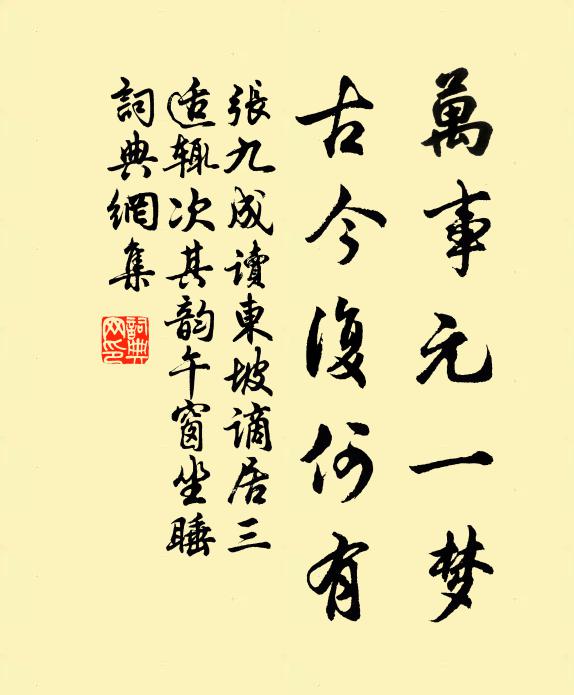 萬事元一梦
古今復何有
張九成讀東坡謫居三
适辄次其韵午窗坐睡
詞典網集
詞典網印